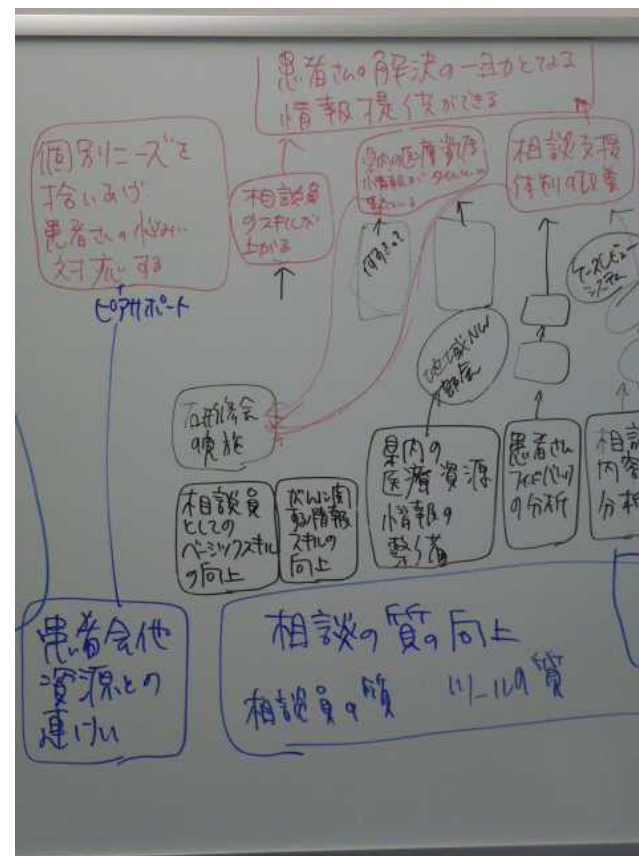 患者さんの解決の一助となる
情報提供ができる
個別ニーズを
拾いあげ
患者さんの悩みに
対応する
ピアサポート
相談員
のスキルが
上がる
県内の医療資源
の情報がタイムリーに
相談支援
体制の改善
ケースレビュー
システム
地域NW
部会
研修会
の実施
相談員
としての
ベーシックスキル
の向上
がんに関
する情報
スキルの
向上
県内の
医療資源
情報の
整備
患者さん
フィードバック
の分析
相談
内容
分析
患者会他
資源との
連けい
相談の質の向上
相談員の質 ツールの質